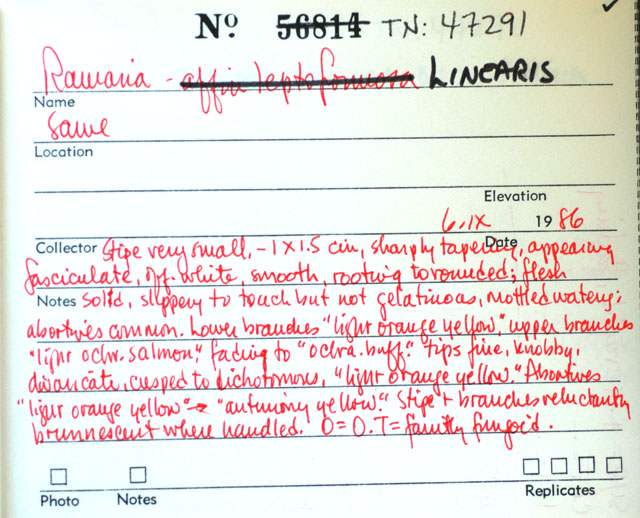 Nº 56814 TN: 47291
Ramaria - affin leptoformosa LINEARIS
Name
Same
Location
Elevation
6.IX 1986
Collector Date
Stipe very small, - 1 x 1.5 cm, sharply tapering, appearing
fasciculate, off-white, smooth, rooting to rounded; flesh
Notes solid, slippery to touch but not gelatinous, mottled watery;
abortives common. Lower branches "light orange yellow," upper branches
"light ochr. salmon." fading to "ochra. buff." tips fine, knobby,
divaricate, cusped to dichotomous, "light orange yellow." Abortives
"light orange yellow" → "antimony yellow." Stipe + branches reluctantly
brunnescent where handled. O = O. T = faintly fungoid.
Photo Notes Replicates